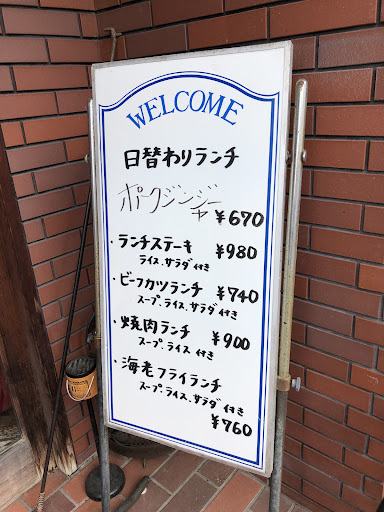 WELCOME
日替わりランチ
ポークジンジャー
¥670
・ランチステーキ ¥980
ライス、サラダ付き
・ビーフカツランチ ¥740
スープ、ライス、サラダ付き
・焼肉ランチ ¥900
スープ、ライス付き
・海老フライランチ
スープ、ライス、サラダ付き
¥760